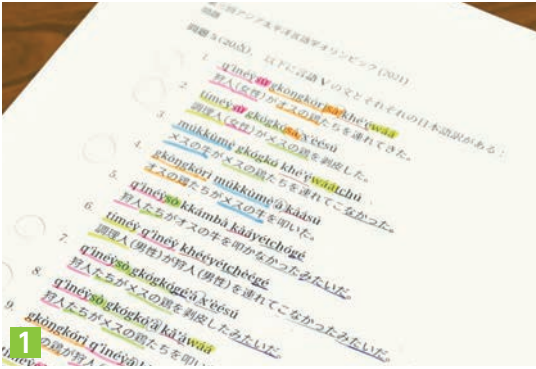 第三回アジア太平洋言語学オリンピック (2021)
問題
問題 5 (20点). 以下に言語 V の文とそれぞれの日本語訳がある:
1. q'íneýsǜ gkòngkórí
狩人(女性)がオスの鶏たちを連れてきた。
2. tíméýsǜ gkógkúsà x'éésú
調理人(女性)がメスの鶏を剥皮した。
3. múkkúmè gkógkó khé'éwáátchú
メスの牛がメスの鶏たちを連れてこなかった。
4. gkòngkórí múkkúmé'à kà'ású
オスの鶏たちがメスの牛を叩いた。
5. q'íneýsò kkámbá kàáyétchógé
狩人たちがオスの牛を叩かなかったみたいだ。
6. tíméý q'íneý khéèyétchéégé
調理人(男性)が狩人(男性)を連れてこなかったみたいだ。
7. q'íneýsò gkógkógé'à x'éésú
狩人たちがメスの鶏を剥皮したみたいだ。
8. q'íneýsò gkógkó'à kà'áwáá
狩人たちがメスの鶏たちを叩い
9. gkòngkórí q'íneý'à
の鶏が狩人
1